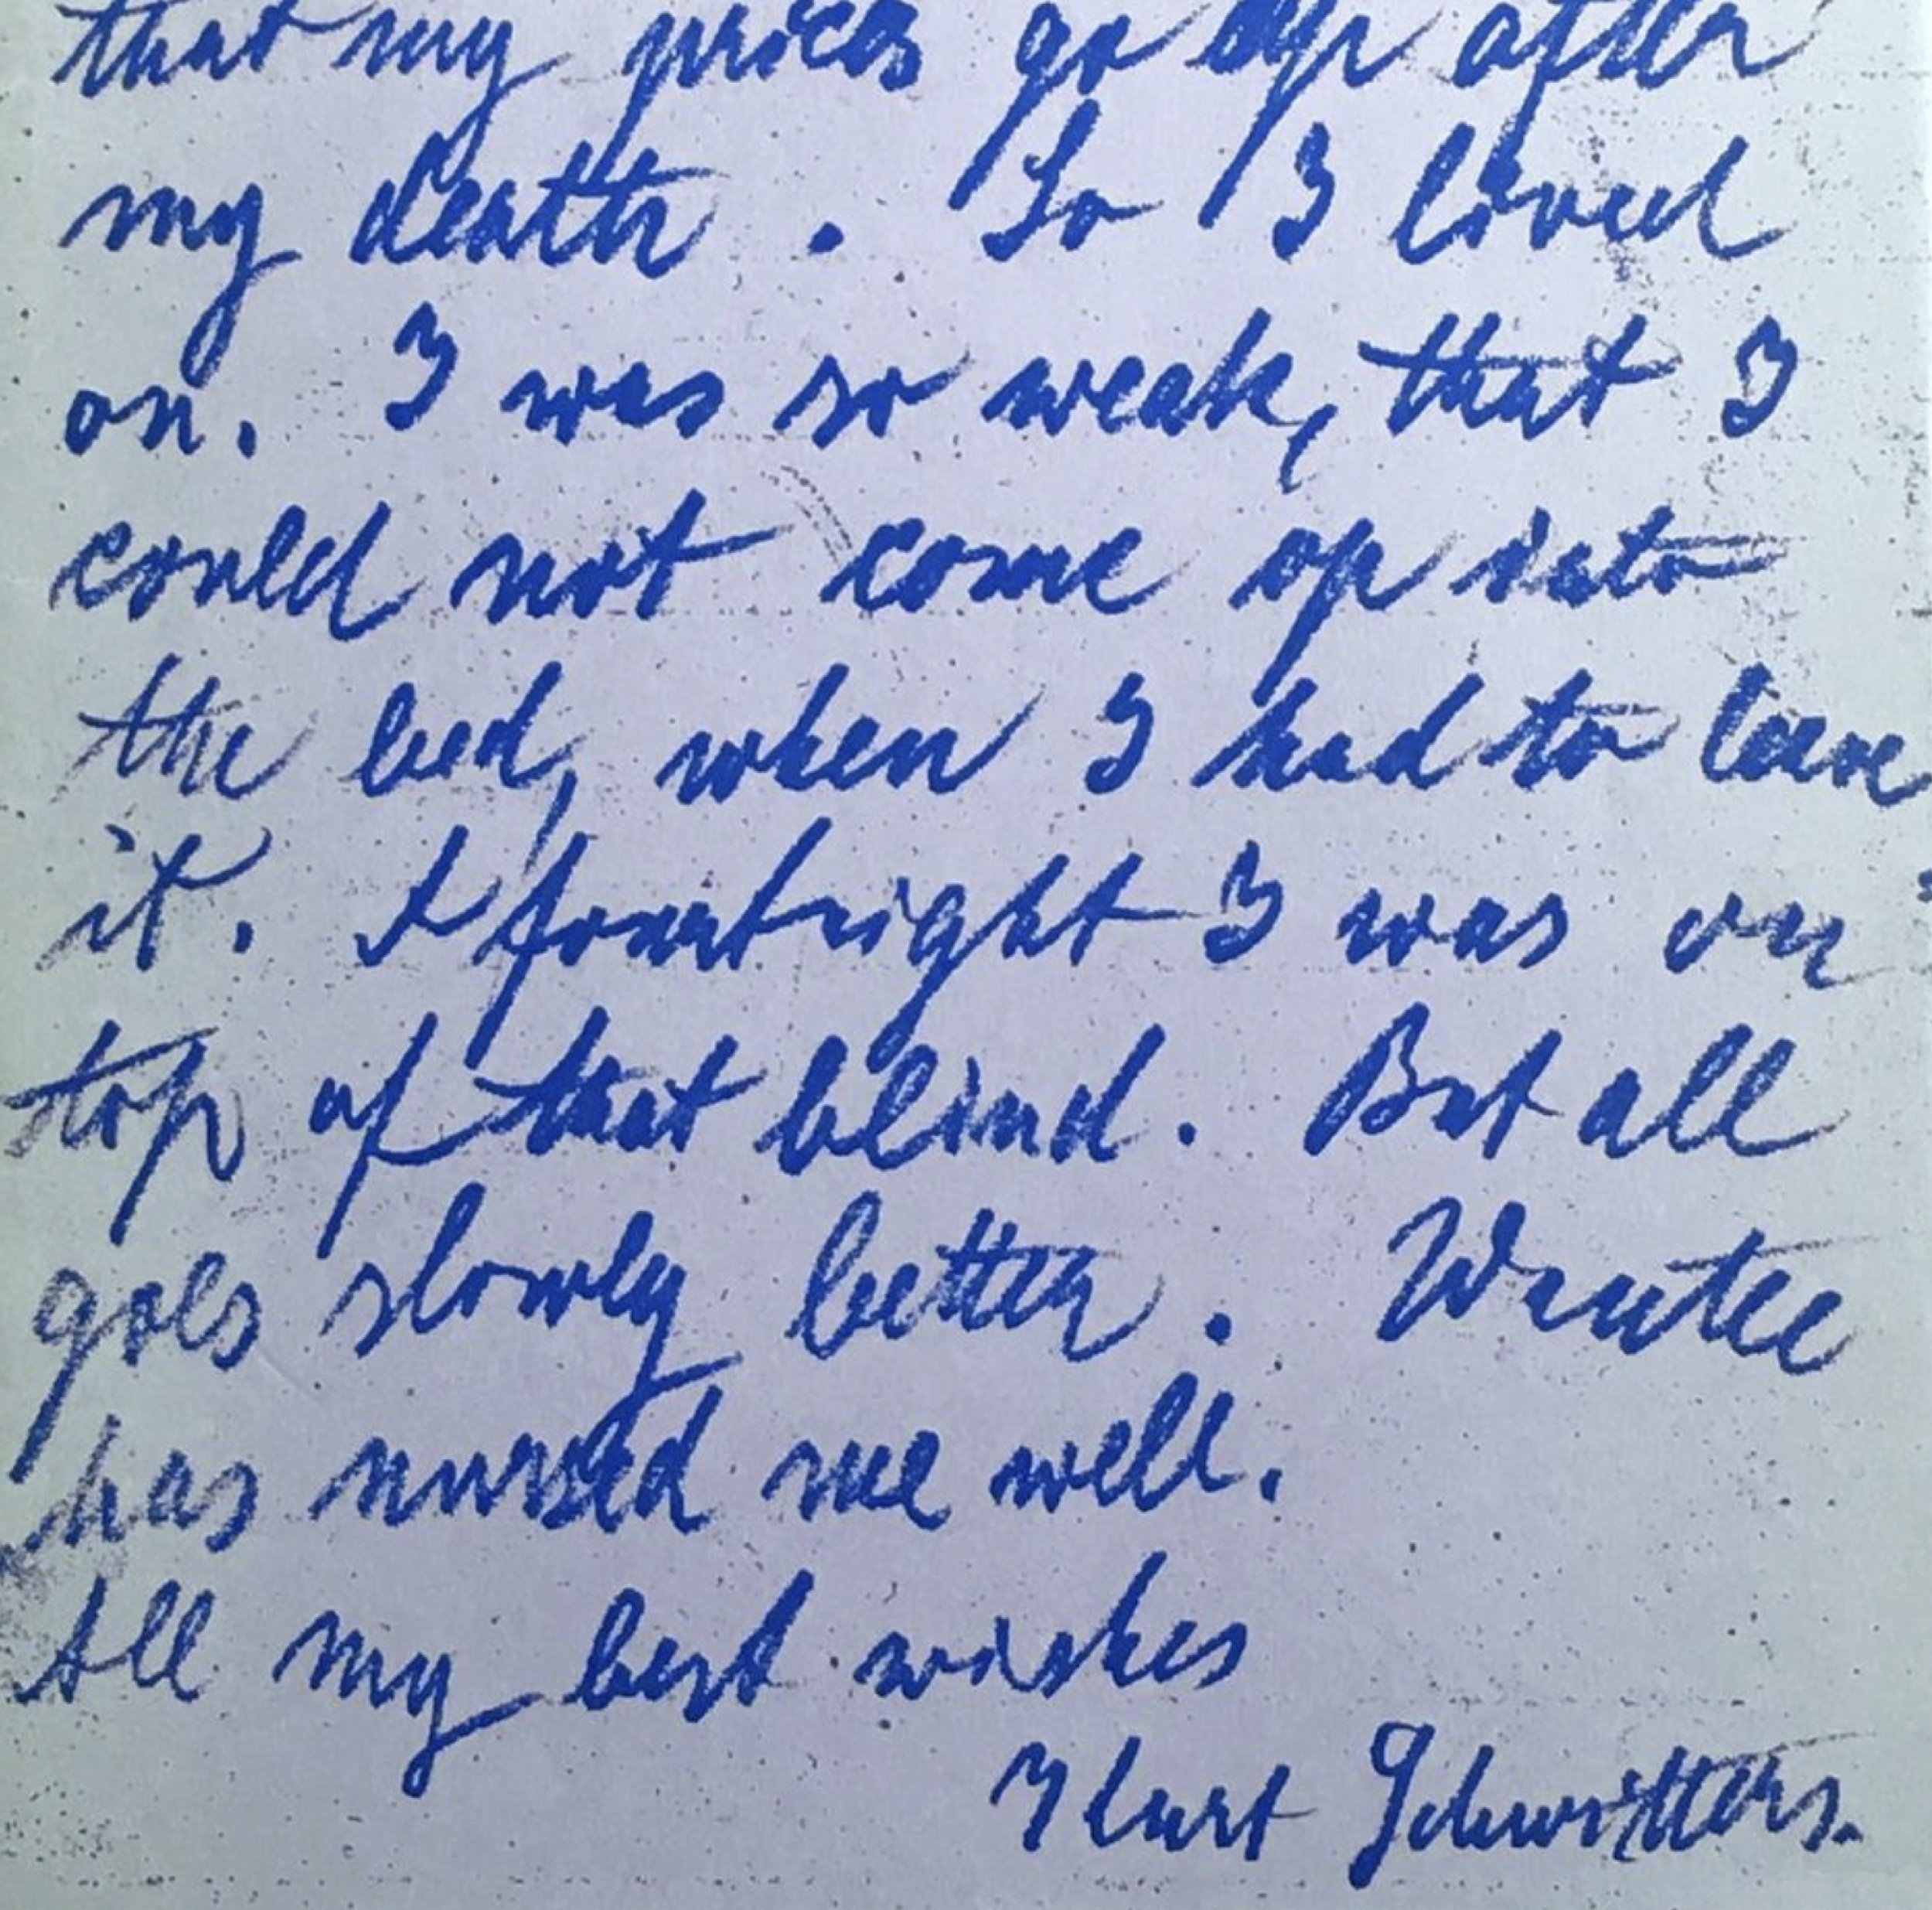 that my prices go up after
my death. So I lived
on. I was so weak, that I
could not come op into
the bed, when I had to leave
it. A fourtnight I was on
top of that blind. But all
goes slowly better. Wantee
has nursed me well.
All my best wishes
Kurt Schwitters.